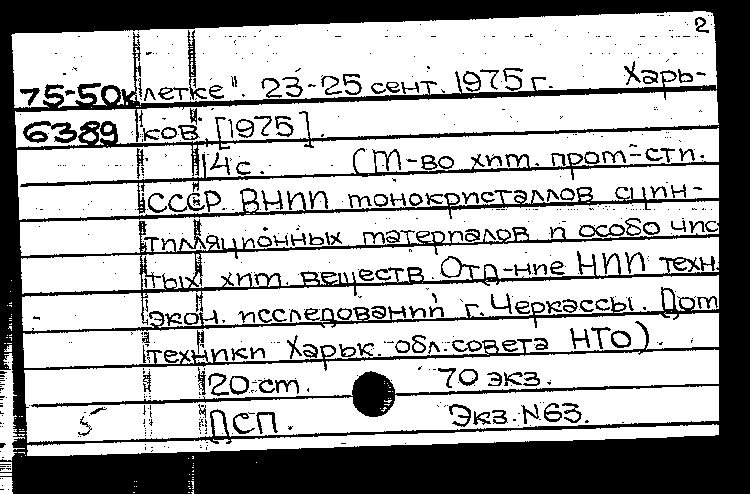 2
75-50к летке". 23-25 сент. 1975 г. Харь-
6389 ков, [1975].
14 с. (М-во хим. пром-сти.
СССР. ВНИИ монокристаллов сцин-
тилляционных материалов и особо чис
тых хим. веществ. Отд-ние НИИ техн.
экон. исследований г. Черкассы. Дом
техники Харьк. обл. совета НТО).
20 см. 70 экз.
5 ДСП. Экз. N63.